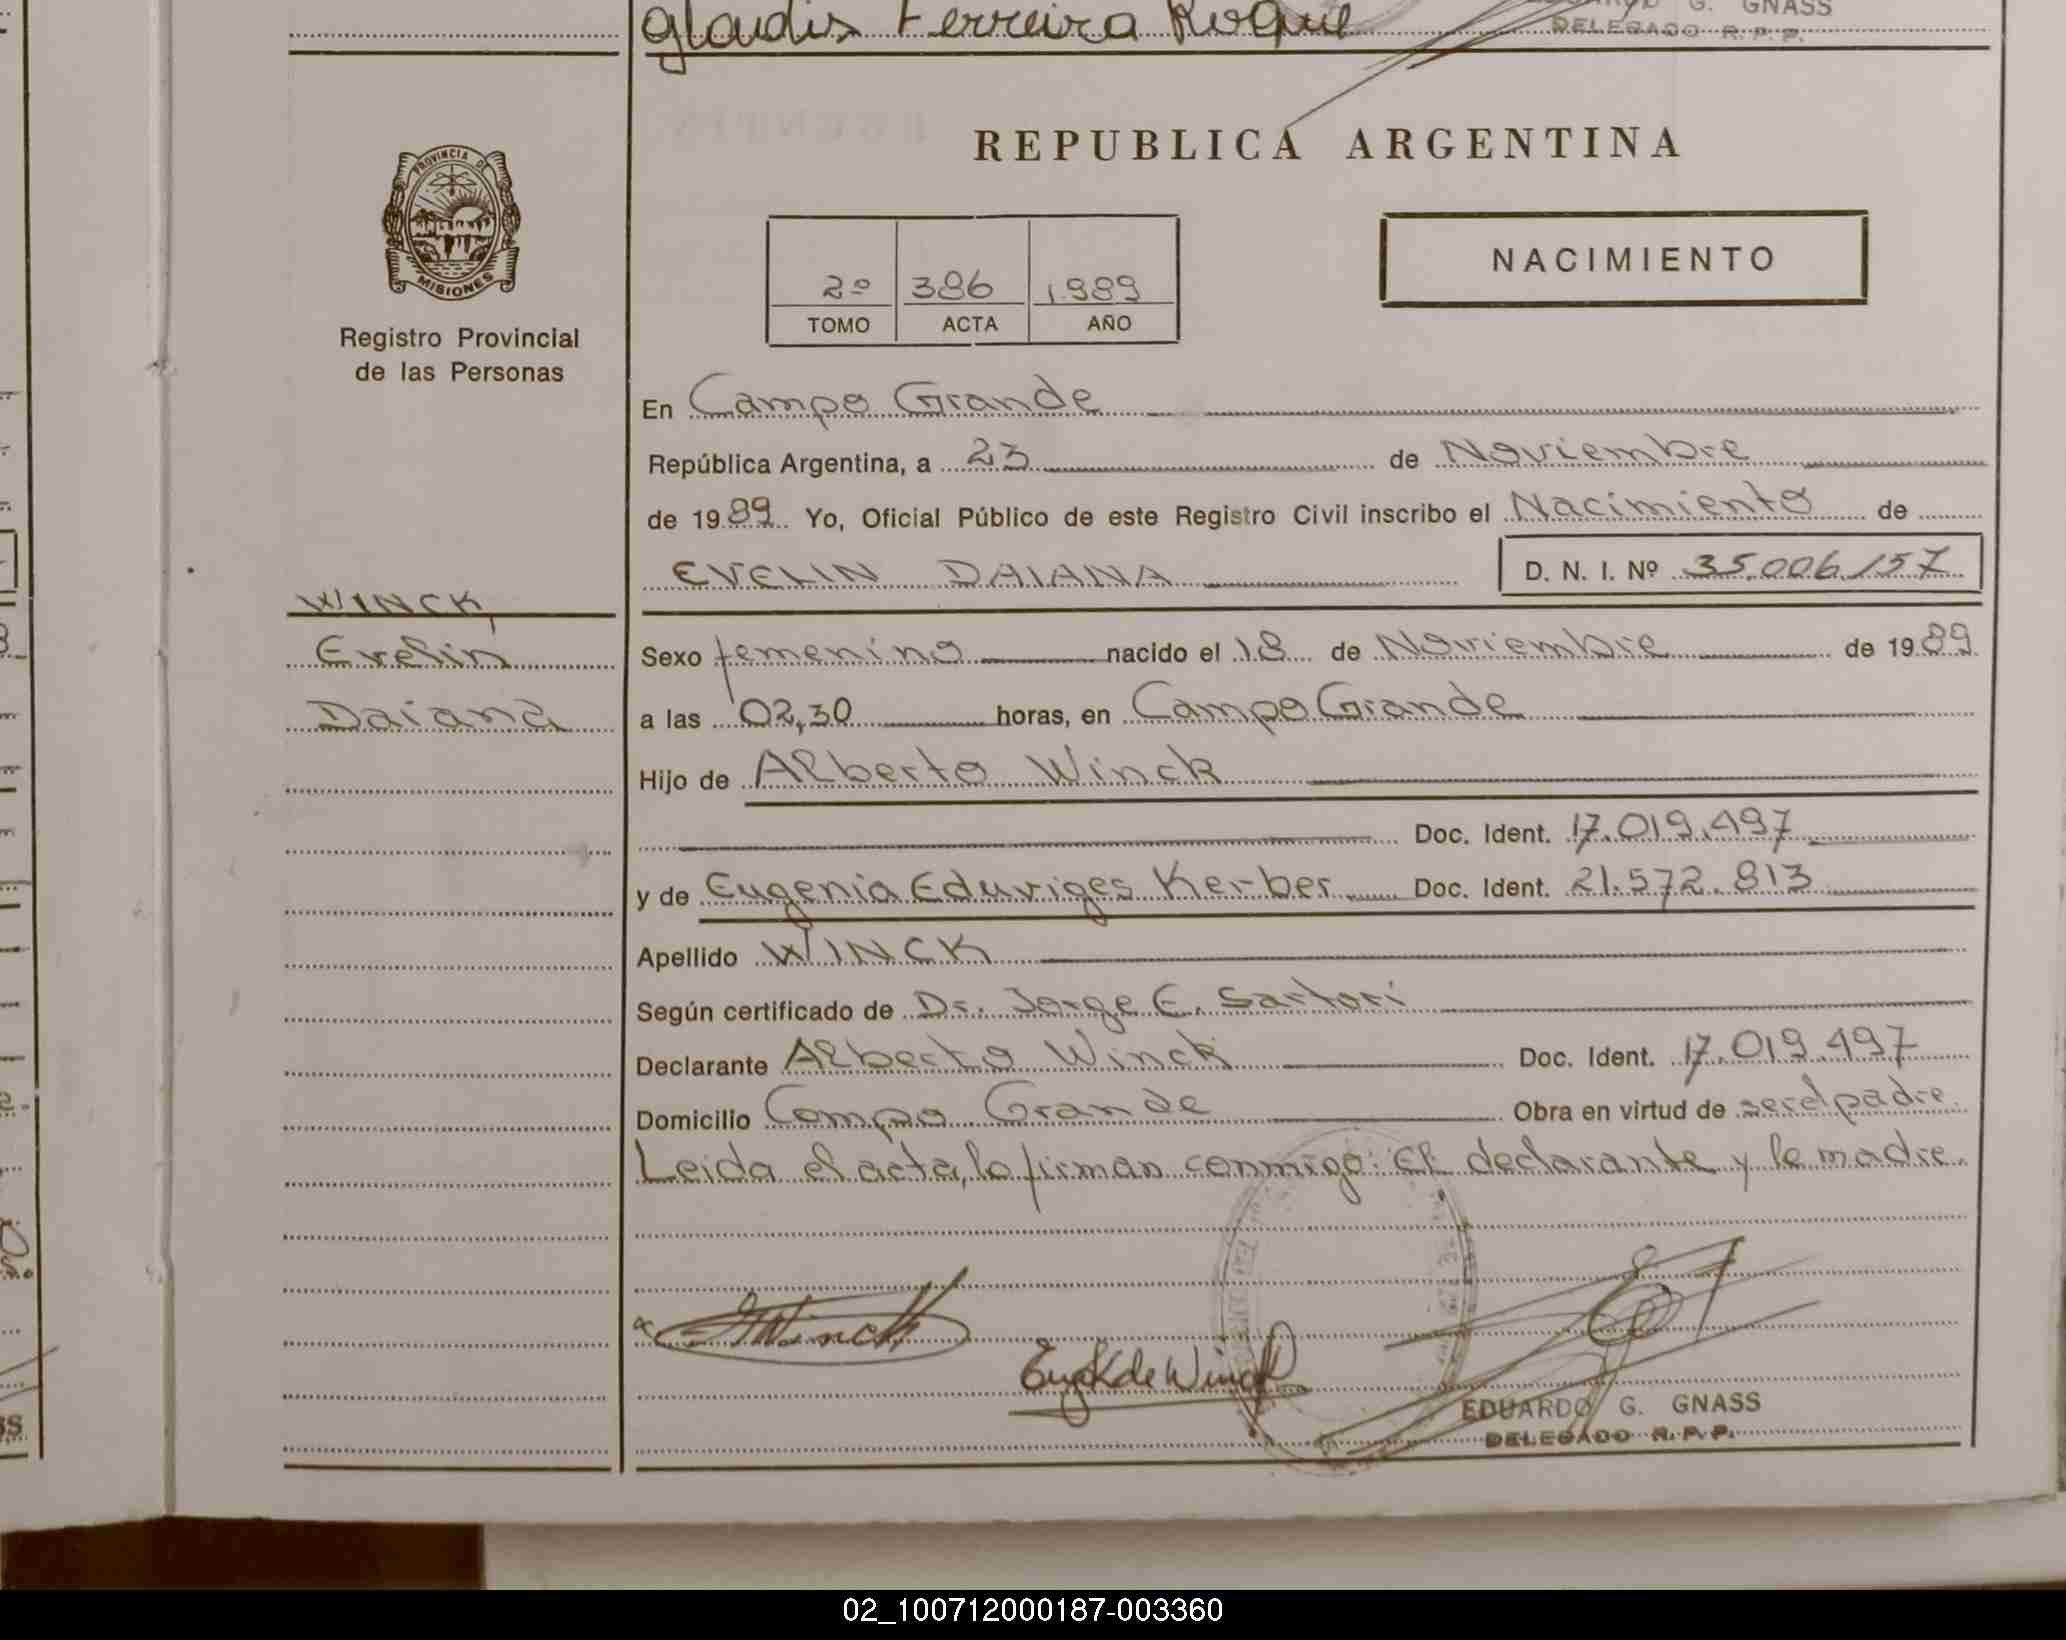 Gladis Ferreira Roque
G. GNASS
DELEGADO R. P. P.
PROVINCIA DE
MISIONES
Registro Provincial
de las Personas
REPUBLICA ARGENTINA
2º 386 1989
TOMO ACTA AÑO
NACIMIENTO
En Campo Grande
República Argentina, a 23 de Noviembre
de 1989 Yo, Oficial Público de este Registro Civil inscribo el Nacimiento de
EVELIN DAIANA D. N. I. Nº 35.006.157
WINCK,
Evelin
Daiana
Sexo femenino nacido el 18 de Noviembre de 1989
a las 02,30 horas, en Campo Grande
Hijo de Alberto Winck
Doc. Ident. 17.019.497
y de Eugenia Eduviges Kerber Doc. Ident. 21.572.813
Apellido WINCK
Según certificado de Dr. Jorge E. Sartori
Declarante Alberto Winck Doc. Ident. 17.019.497
Domicilio Campo Grande Obra en virtud de ser el padre.
Leida el acta, la firman conmigo: el declarante y la madre.
Winck
Eug K de Winck
EDUARDO G. GNASS
DELEGADO R. P. P.
02_100712000187-003360